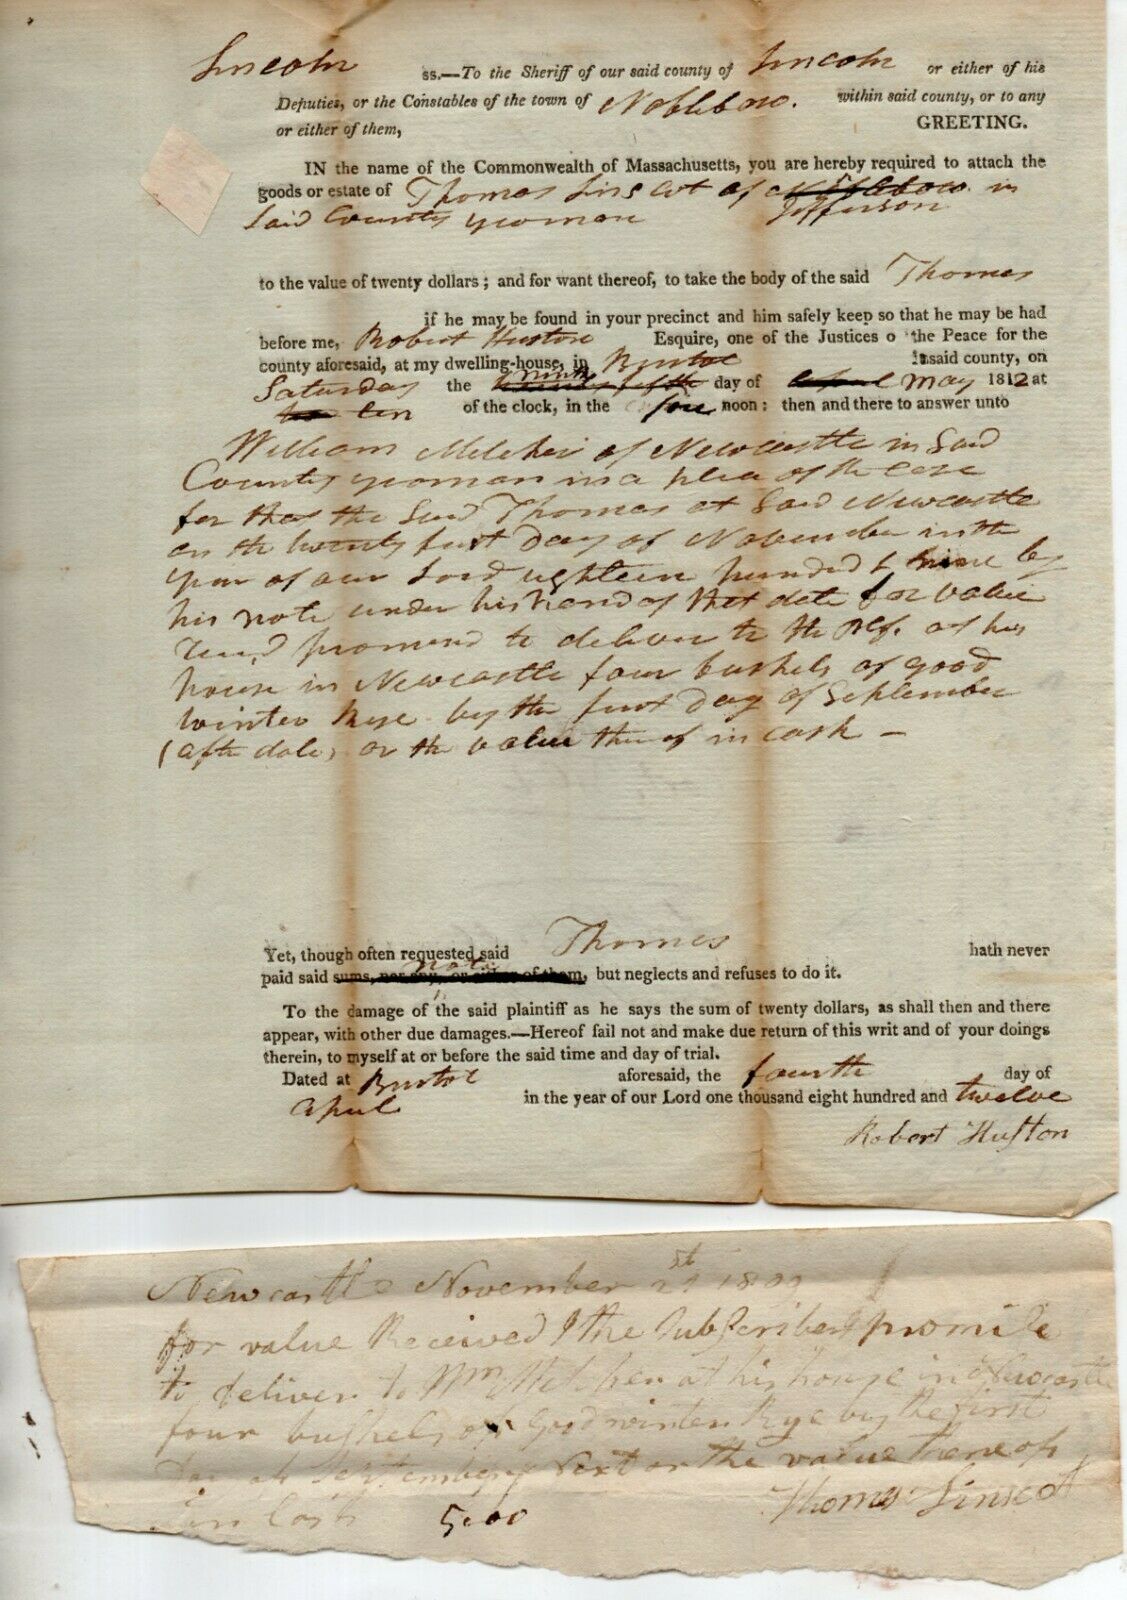 Lincoln ss.—To the Sheriff of our said county of Lincoln or either of his
Deputies, or the Constables of the town of Nobleboro. within said county, or to any
or either of them, GREETING.
IN the name of the Commonwealth of Massachusetts, you are hereby required to attach the
goods or estate of Thomas Linscot of Nobleboro in
Said County yeoman Jefferson
to the value of twenty dollars; and for want thereof, to take the body of the said Thomas
if he may be found in your precinct and him safely keep so that he may be had
before me, Robert Huston Esquire, one of the Justices o the Peace for the
county aforesaid, at my dwelling-house, in Bristol in said county, on
ninth
Saturday the twenty fifth day of April May 1812 at
ten of the clock, in the fore noon: then and there to answer unto
William Melcher of Newcastle in Said
County yeoman in a plea of the case
for that the Said Thomas at Said Newcastle
on the twenty first Day of November in the
year of our Lord eighteen hundred & nine by
his note under his hand of that date for value
recd. promised to deliver to the Plf. at his
house in Newcastle four bushels of good
winter Rye by the first Day of September
(after date) or the value thereof in cash –
Yet, though often requested said Thomas hath never
note
paid said sums, nor any, or either of them, but neglects and refuses to do it.
To the damage of the said plaintiff as he says the sum of twenty dollars, as shall then and there
appear, with other due damages.—Hereof fail not and make due return of this writ and of your doings
therein, to myself at or before the said time and day of trial.
Dated at Bristol aforesaid, the fourth day of
April in the year of our Lord one thousand eight hundred and twelve
Robert Huston
Newcastle November 21st 1809
for value Received I the Subscriber promise
to deliver to Wm Melcher at his house in Newcastle
four bushels of Good winter Rye by the first
Day of September Next or the value thereof
in Cash 5.00 Thomas Linscot